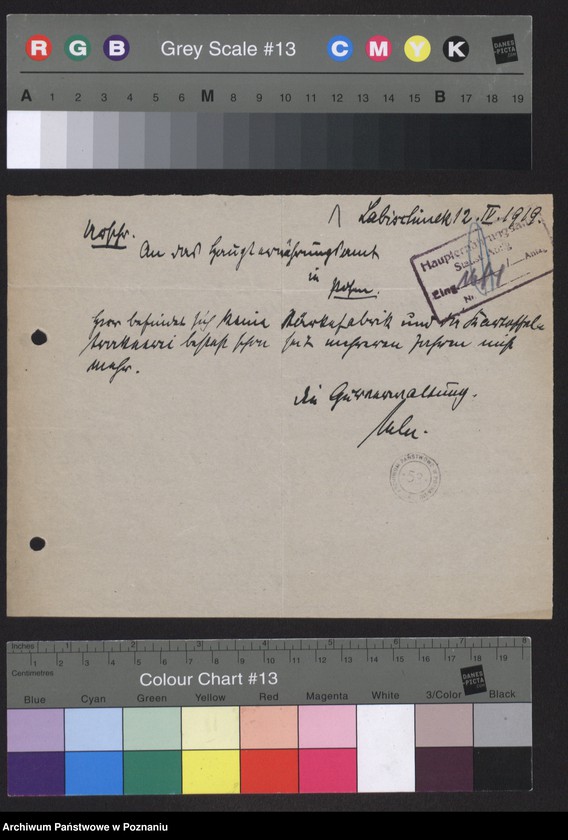 R G B Grey Scale #13 C M Y K DANES-PICTA.COM
A 1 2 3 4 5 6 M 8 9 10 11 12 13 14 15 B 17 18 19
Labischinek 12. IV. 1919.
An das Haupternährungsamt
in
Posen.
Haupternährungsamt
Stadt
Eing.
Nr.
Hier befindet sich keine Stärkefabrik und die Kartoffel
trocknerei besteht schon seit mehreren Jahren nicht
mehr.
Die Gutsverwaltung.
Inches 1 2 3 4 5 6 7 8
Centimetres 1 2 3 4 5 6 7 8 9 10 11 12 13 14 15 16 17 18 19
Colour Chart #13 DANES-PICTA.COM
Blue Cyan Green Yellow Red Magenta White 3/Color Black
Archiwum Państwowe w Poznaniu